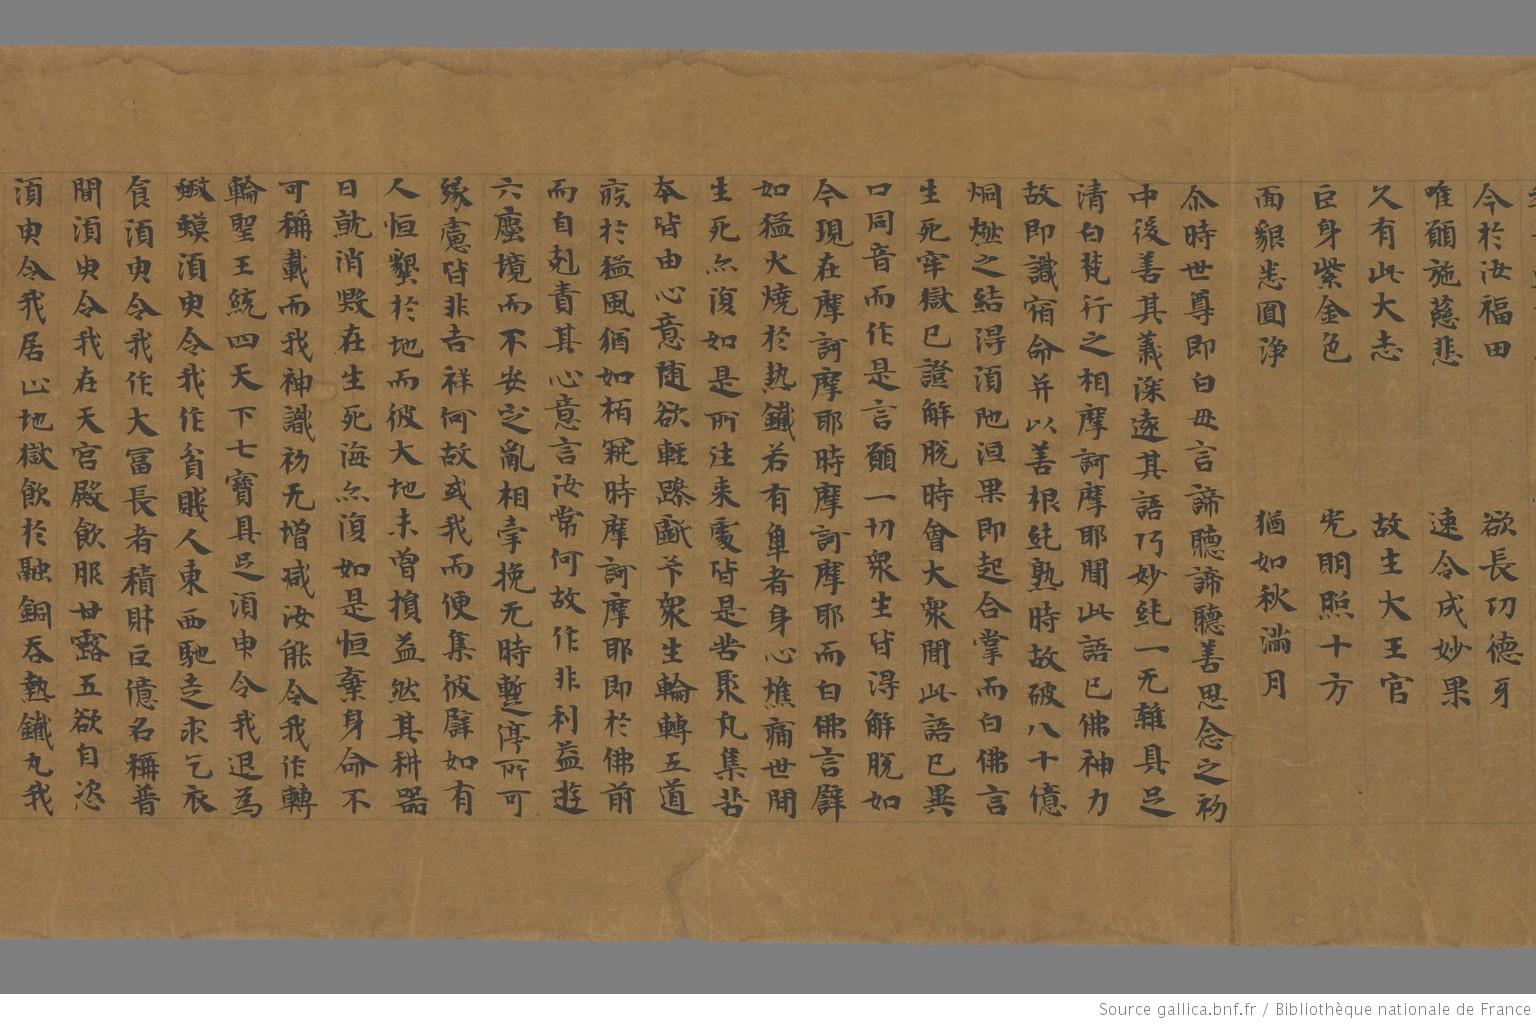 今於汝福田　欲長功德牙
唯願施慈悲　速令成妙果
久有此大志　故生大王官
巨身紫金色　光明照十方
面貌悉圓淨　猶如秋滿月
尒時世尊即白母言諦聽諦聽善思念之初
中後善其義深遠其語巧妙純一无雜具足
清白梵行之相摩訶摩耶聞此語已佛神力
故即識宿命并以善根純熟時故破八十億
炯燃之結得湏陁洹果即起合掌而白佛言
生死牢獄已證解脫時會大衆聞此語已異
口同音而作是言願一切衆生皆得解脫如
今現在摩訶摩耶時摩訶摩耶而白佛言譬
如猛火燒於熱鐵若有觸者身心燋痛世間
生死亦復如是所往来處皆是苦聚凡集苦
本皆由心意随欲輕躁衆生輪轉五道
疾於猛風猶如栢時摩訶摩耶即於佛前
而自剋責其心意言汝常何故作非利益遊
六塵境而不安定亂相牽挽无時蹔停所可
縁慮皆非吉祥何故或我而便集彼譬如有
人恒墾於地而彼大地未曽損益然其耕器
日就消毀在生死海亦復如是恒棄身命不
可稱載而我神識初无增减汝能令我作轉
輪聖王統四天下七寶具足湏臾令我退為
蝦蟇湏臾令我作貧賤人東西馳走求乞衣
食湏臾令我作大冨長者積財巨億名稱普
聞湏臾令我在天宮殿飲服甘露五欲自恣
湏臾令我居止地獄飲於融銅吞熱鐵丸我
Source gallica.bnf.fr / Bibliothèque nationale de France